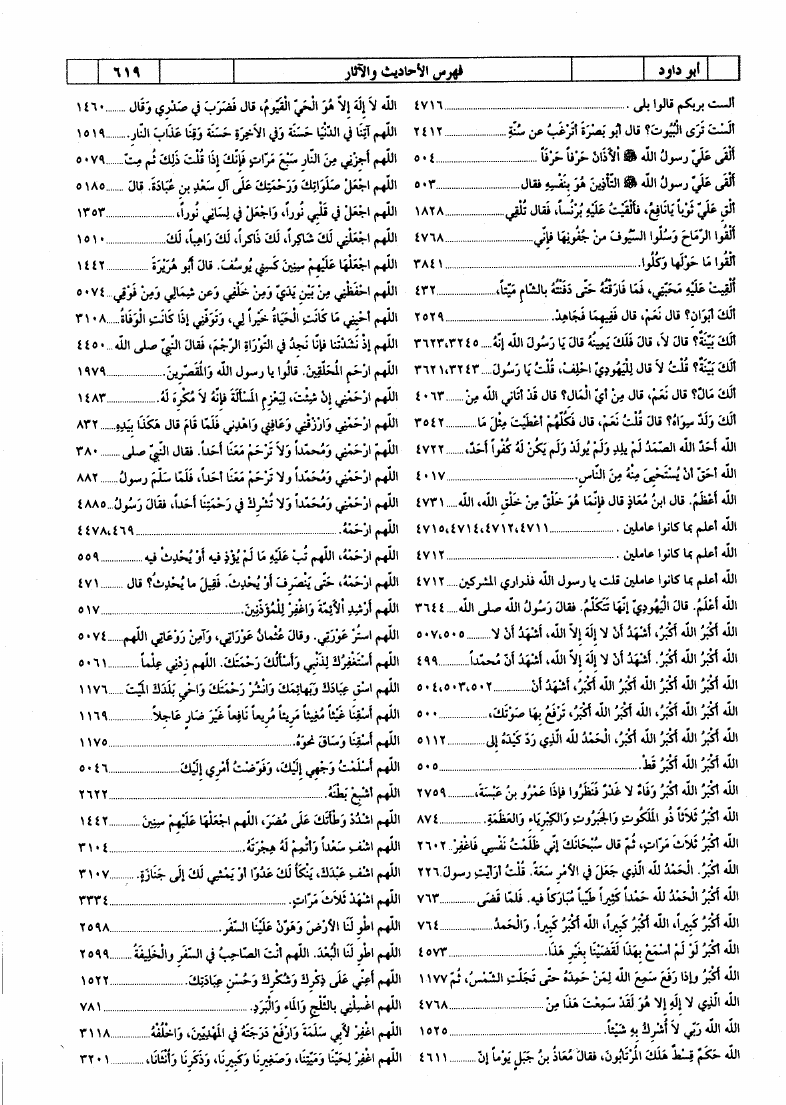 أبو داود
فهرس الأحاديث والآثار
٦١٩
ألست بربكم قالوا بلى . ٤٧١٦
أَلَسْتَ تَرَى الْبُيُوتَ؟ قال أبُو بَصْرَةَ أتَرْغَبُ عن سُنَّةِ ٢٤١٢
ألْقَى عَلَيَّ رسولُ الله ﷺ الأذَانَ حَرْفاً حَرْفاً ٥٠٤
ألْقَى عَلَيَّ رسولُ الله ﷺ التَّأذِينَ هُوَ بِنَفْسِهِ فقال ٥٠٣
ألْقِ عَلَيَّ ثَوْباً يَانَافِعُ، فألْقَيْتُ عَلَيْهِ بُرْنُساً، فَقال تُلْقِي ١٨٢٨
ألْقُوا الرِّمَاحَ وَسُلُّوا السُّيُوفَ من جُفُونِهَا فإنِّي ٤٧٦٨
ألْقُوا مَا حَوْلَها وَكُلُوا. ٣٨٤١
أُلْقِيَتْ عَلَيْهِ مَحَبَّتِي، فَمَا فَارَقْتُهُ حَتَّى دَفَنْتُهُ بالشَّامِ مَيِّتاً، ٤٣٢
ألَكَ أبَوَانِ؟ قال نَعَمْ، قال فَفِيهِمَا فَجَاهِدْ. ٢٥٢٩
ألَكَ بَيِّنَةٌ؟ قالَ لاَ، قالَ فَلَكَ يَمِينُهُ قالَ يَا رَسُولَ الله إنَّهُ ٣٦٢٣،٣٢٤٥
ألَكَ بَيِّنَةٌ؟ قُلْتُ لاَ قال لِلْيَهُودِيِّ احْلِفْ، قُلْتُ يَا رَسُولَ ٣٦٢١،٣٢٤٣
ألَكَ مَالٌ؟ قال نَعَمْ، قال مِنْ أيِّ الْمَالِ؟ قال قَدْ آتَانِي الله مِنْ ٤٠٦٣
ألَكَ وَلَدٌ سِوَاهُ؟ قالَ قُلْتُ نَعَمْ، قال فَكُلَّهُمْ أعْطَيْتَ مِثْلَ مَا ٣٥٤٢
الله أحَدٌ الله الصَّمَدُ لَمْ يلِدْ وَلَمْ يُولَدْ وَلَمْ يَكُنْ لَهُ كُفُواً أحَدٌ، ٤٧٢٢
الله أحَقُّ أنْ يُسْتَحْيَى مِنْهُ مِنَ النَّاسِ. ٤٠١٧
الله أعْظَمُ. قال ابنُ مُعَاذٍ قال فإنَّمَا هُوَ خَلْقٌ مِنْ خَلْقِ الله، الله ٤٧٣١
الله أعلم بما كانوا عاملين . ٤٧١٥،٤٧١٤،٤٧١٢،٤٧١١
الله أعلم بما كانوا عاملين . ٤٧١٢
الله أعلم بما كانوا عاملين قلت يا رسول الله فذراري المشركين ٤٧١٢
الله أعْلَمُ. قالَ الْيَهُودِيُّ إنَّهَا تَتَكَلَّمُ. فقالَ رَسُولُ الله صلى الله ٣٦٤٤
الله أكْبَرُ الله أكْبَرُ، أشْهَدُ أنْ لا إلَهَ إلاَّ الله، أشْهَدُ أنْ لا ٥٠٧،٥٠٥
الله أكْبَرُ الله أكْبَرُ. أشْهَدُ أنْ لا إلَهَ إلاَّ الله، أشْهَدُ أنَّ مُحمَّداً ٤٩٩
الله أكْبَرُ الله أكْبَرُ الله أكْبَرُ الله أكْبَرُ، أشْهَدُ أنْ ٥٠٤،٥٠٣،٥٠٢
الله أكْبَرُ الله أكْبَرُ، الله أكْبَرُ الله أكْبَرُ، تَرْفَعُ بِهَا صَوْتَكَ، ٥٠٠
الله أكْبَرُ الله أكْبَرُ الله أكْبَرُ، الْحَمْدُ لله الَّذِي رَدَّ كَيْدَهُ إلى ٥١١٢
الله أكْبَرُ الله أكْبَرُ قَطُّ. ٥٠٥
الله أكْبَرُ الله أكْبَرُ وَفَاءٌ لا غَدْرٌ فَنَظَرُوا فإذَا عَمْرُو بنُ عَبَسَةَ، ٢٧٥٩
الله أكْبَرُ ثَلاَثاً ذُو المَلَكُوتِ وَالْجَبَرُوتِ وَالْكِبْرِيَاءِ وَالْعَظَمَةِ. ٨٧٤
الله أكْبَرُ ثَلاَثَ مَرَّاتٍ، ثُمَّ قال سُبْحَانَكَ إنِّي ظَلَمْتُ نَفْسِي فَاغْفِرْ ٢٦٠٢
الله أكْبَرُ. الْحَمْدُ لله الَّذِي جَعَلَ في الأمْرِ سَعَةً. قُلْتُ أرَأيْتِ رسولَ ٢٢٦
الله أكْبَرُ الْحَمْدُ لله حَمْداً كَثِيراً طَيِّباً مُبَارَكاً فيه. فلمَّا قَضَى ٧٦٣
الله أكْبَرُ كَبِيراً، الله أكْبَرُ كَبِيراً، الله أكْبَرُ كَبِيراً. وَالْحَمْدُ ٧٦٤
الله أكْبَرُ لَوْ لَمْ اسْمَعْ بِهَذَا لَقَضَيْنَا بِغَيْرِ هَذَا. ٤٥٧٣
الله أكْبَرُ وإذا رَفَعَ سَمِعَ الله لِمَنْ حَمِدَهُ حتَّى تَجَلَّتِ الشَّمْسُ، ثُمَّ ١١٧٧
الله الَّذِي لا إلَهَ إلاَّ هُوَ لَقَدْ سَمِعْتَ هَذَا مِنْ ٤٧٦٨
الله الله رَبِّي لاَ أُشْرِكُ بِهِ شَيْئاً. ١٥٢٥
الله حَكَمٌ قِسْطٌ هَلَكَ الْمُرْتَابُونَ، فقالَ مُعَاذُ بنُ جَبَلٍ يَوْماً إنَّ ٤٦١١
الله لاَ إلَهَ إلاَّ هُوَ الْحَيُّ الْقَيُّومُ، قال فَضَرَبَ في صَدْرِي وَقال ١٤٦٠
اللّهم آتِنَا في الدُّنْيَا حَسَنَةً وَفي الآخِرَةِ حَسَنَةً وَقِنَا عَذَابَ النَّارِ. ١٥١٩
اللّهم أجِرْنِي مِنَ النارِ سَبْعَ مَرَّاتٍ فَإنَّكَ إذَا قُلْتَ ذَلِكَ ثُم مِتَّ ٥٠٧٩
اللّهم اجْعَلْ صَلَوَاتِكَ وَرَحْمَتِكَ عَلَى آلِ سَعْدِ بنِ عُبَادَةَ. قالَ ٥١٨٥
اللّهم اجْعَلْ في قَلْبِي نُوراً، وَاجْعَلْ في لِسَانِي نُوراً، ١٣٥٣
اللّهم اجْعَلْنِي لَكَ شَاكِراً، لَكَ ذَاكِراً، لَكَ رَاهِباً، لَكَ ١٥١٠
اللّهم اجْعَلْهَا عَلَيْهِمْ سِنِينَ كَسِنِي يُوسُفَ. قالَ أبُو هُرَيْرَةَ ١٤٤٢
اللّهم احْفَظْنِي مِنْ بَيْنِ يَدَيَّ وَمِنْ خَلْفِي وَعن شِمَالِي وَمِنْ فَوْقِي ٥٠٧٤
اللّهم أحْيِنِي مَا كَانَتِ الْحَيَاةُ خَيْراً لِي، وَتَوَفَّنِي إذَا كَانَتِ الْوَفَاةُ ٣١٠٨
اللّهم إذْ نَشَدْتَنَا فإنَّا نَجِدُ في التَّوْرَاةِ الرَّجْمَ، فقَالَ النَّبيُّ صلى الله ٤٤٥٠
اللّهم ارْحَمِ الْمُحَلِّقِينَ. قالُوا يا رسولَ الله وَالمُقَصِّرِينَ. ١٩٧٩
اللّهم ارْحَمْنِي إنْ شِئْتَ، لِيَعْزِمِ الْمَسْألَةَ فإنَّهُ لاَ مُكْرِهَ لَهُ. ١٤٨٣
اللّهم ارْحَمْنِي وَارْزُقْنِي وَعَافِنِي وَاهْدِنِي فَلَمَّا قَامَ قال هَكَذَا بِيَدِهِ ٨٣٢
اللّهم ارْحَمْنِي وَمُحَمَّداً وَلاَ تَرْحَمْ مَعَنَا أحَداً. فقال النَّبيُّ صلى ٣٨٠
اللّهم ارْحَمْنِي وَمُحَمَّداً ولا تَرْحَمْ مَعَنَا أحَداً، فَلَمَّا سَلَّمَ رسولُ ٨٨٢
اللّهم ارْحَمْنِي وَمُحَمَّداً وَلا تُشْرِكْ في رَحْمَتِنَا أحَداً، فقالَ رَسُولُ ٤٨٨٥
اللّهم ارْحَمْهُ. ٤٤٧٨،٤٦٩
اللّهم ارْحَمْهُ، اللّهم تُبْ عَلَيْهِ مَا لَمْ يُؤْذِ فيه أوْ يُحْدِثْ فيه ٥٥٩
اللّهم ارْحَمْهُ، حَتَّى يَنْصَرِفَ أوْ يُحْدِثَ. فَقِيلَ ما يُحْدِثُ؟ قال ٤٧١
اللّهم أرْشِدِ الأَئِمَّةَ وَاغْفِرْ لِلْمُؤَذِّنِينَ. ٥١٧
اللّهم استُرْ عَوْرَتِي. وقالَ عُثْمانُ عَوْرَاتِي، وَآمِنْ رَوْعَاتِي اللّهم ٥٠٧٤
اللّهم أسْتَغْفِرُكَ لِذَنْبِي وَأسْألُكَ رَحْمَتَكَ. اللّهم زِدْنِي عِلْماً ٥٠٦١
اللّهم اسْقِ عِبَادَكَ وَبَهَائِمَكَ وَانْشُرْ رَحْمَتَكَ وَاحْيِ بَلَدَكَ المَيِّتَ ١١٧٦
اللّهم أسْقِنَا غَيْثاً مُغِيثاً مَرِيئاً مُرِيعاً نَافِعاً غَيْرَ ضَارٍ عَاجِلاً ١١٦٩
اللّهم أسْقِنَا وَسَاقَ نَحْوَهُ. ١١٧٥
اللّهم أسْلَمْتُ وَجْهِي إلَيْكَ، وَفَوَّضْتُ أمْرِي إلَيْكَ ٥٠٤٦
اللّهم اشْبِعْ بَطْنَهُ. ٢٦٢٢
اللّهم اشْدُدْ وَطْأتَكَ عَلَى مُضَرَ، اللّهم اجْعَلْهَا عَلَيْهِمْ سِنِينَ ١٤٤٢
اللّهم اشْفِ سَعْداً وَأتْمِمْ لَهُ هِجْرَتَهُ. ٣١٠٤
اللّهم اشْفِ عَبْدَكَ، يَنْكَأُ لَكَ عَدُوّا أوْ يَمْشِي لَكَ إلَى جَنَازَةٍ. ٣١٠٧
اللّهم اشْهَدْ ثَلاَثَ مَرَّاتٍ. ٣٣٣٤
اللّهم اطْوِ لَنَا الأرْضَ وَهَوِّنْ عَلَيْنَا السَّفَرَ. ٢٥٩٨
اللّهم اطْوِ لَنَا الْبُعْدَ. اللّهم أنْتَ الصَّاحِبُ في السَّفَرِ وَالْخَلِيفَةُ ٢٥٩٩
اللّهم أعِنِّي عَلَى ذِكْرِكَ وَشُكْرِكَ وَحُسْنِ عِبَادَتِكَ. ١٥٢٢
اللّهم اغْسِلْنِي بالثَّلْجِ وَالمَاءِ وَالْبَرَدِ. ٧٨١
اللّهم اغْفِرْ لأبي سَلَمَةَ وَارْفَعْ دَرَجَتَهُ في المَهْدِيِّينَ، وَاخْلُفْهُ ٣١١٨
اللّهم اغْفِرْ لِحَيِّنَا وَمَيِّتِنَا، وَصَغِيرِنَا وَكَبِيرِنَا، وَذَكَرِنَا وَأُنْثَانَا، ٣٢٠١